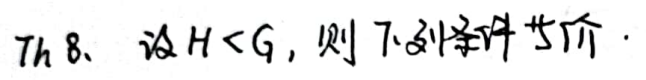 Th 8、 设 H < G, 则下列条件等价.